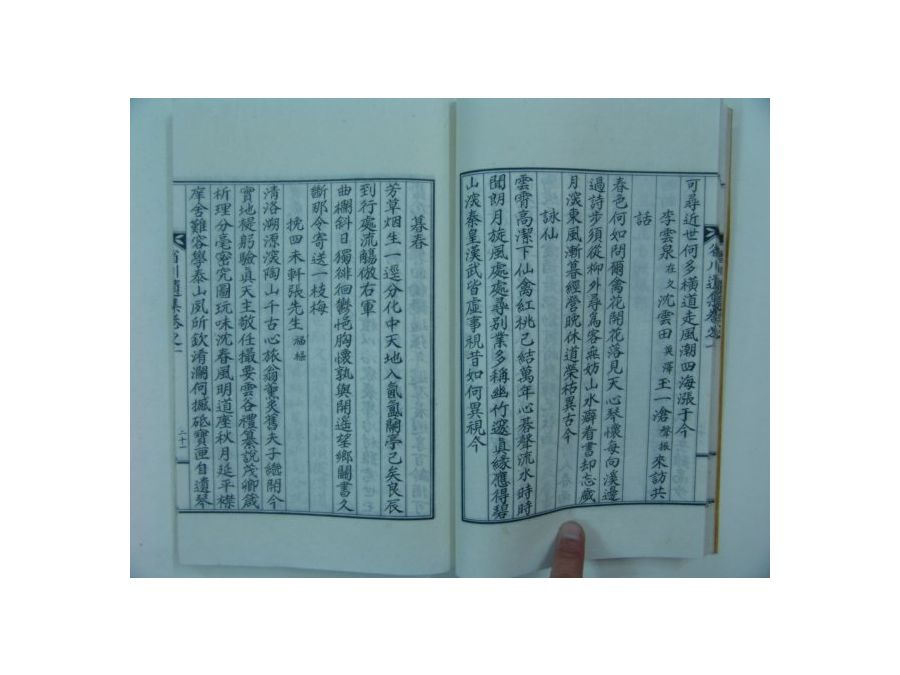 可尋近世何多橫道走風潮四海漲于今
李雲泉在文沈雲田英澤王一滄聲振來訪共
話
春色何如問爾禽花開花落見天心琴懷每向溪邊
過詩步須從柳外尋爲客無妨山水癖看書却忘歲
月深東風漸暮經營晚休道榮枯異古今
詠仙
雲霄高潔下仙禽紅桃已結萬年心碁聲流水時時
聞朗月旋風處處尋別業多稱幽竹邃眞緣應得碧
山深秦皇漢武皆虛事視昔如何異視今
暮春
芳草烟生一逕分化中天地入氤氳蘭亭已矣良辰
到行處流觴倣右軍
曲欄斜日獨徘徊鬱悒胸懷孰與開遙望鄕關書久
斷那令寄送一枝梅
挽四未軒張先生福樞
淸洛溯源深陶山千古心旅翁薰炙舊夫子繼開今
實地槎躬驗眞天主敬任撮要雲谷禮纂說茂卿箴
析理分毫密究圖玩味沈春風明道座秋月延平襟
庠舍難容學泰山夙所欽淆瀾何撼砥寶匣自遺琴
省川遺集卷之一
二十一